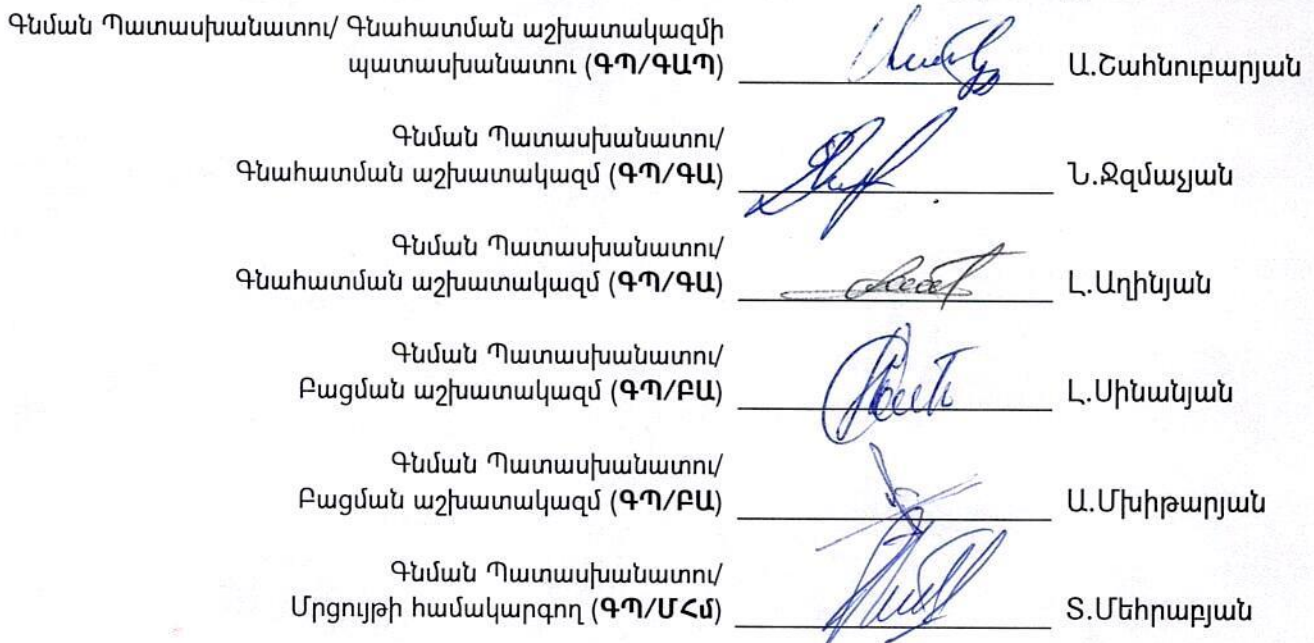 Գնման Պատասխանատու/ Գնահատման աշխատակազմի
պատասխանատու (ԳՊ/ԳԱՊ) Ա.Շահնուբարյան
Գնման Պատասխանատու/
Գնահատման աշխատակազմ (ԳՊ/ԳԱ) Ն.Ջզմաչյան
Գնման Պատասխանատու/
Գնահատման աշխատակազմ (ԳՊ/ԳԱ) Լ.Աղինյան
Գնման Պատասխանատու/
Բացման աշխատակազմ (ԳՊ/ԲԱ) Լ.Սինանյան
Գնման Պատասխանատու/
Բացման աշխատակազմ (ԳՊ/ԲԱ) Ա.Մխիթարյան
Գնման Պատասխանատու/
Մրցույթի համակարգող (ԳՊ/ՄՀմ) Տ.Մեհրաբյան